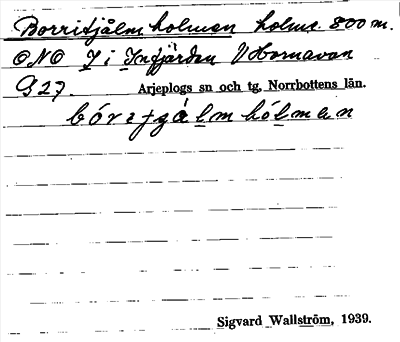 Borritjålmholmen holme. 800 m.
ONO I i Innfjärden V Hornavan
G 27. Arjeplogs sn och tg, Norrbottens län.
bórıtjgålmhólmen
Sigvard Wallström, 1939.